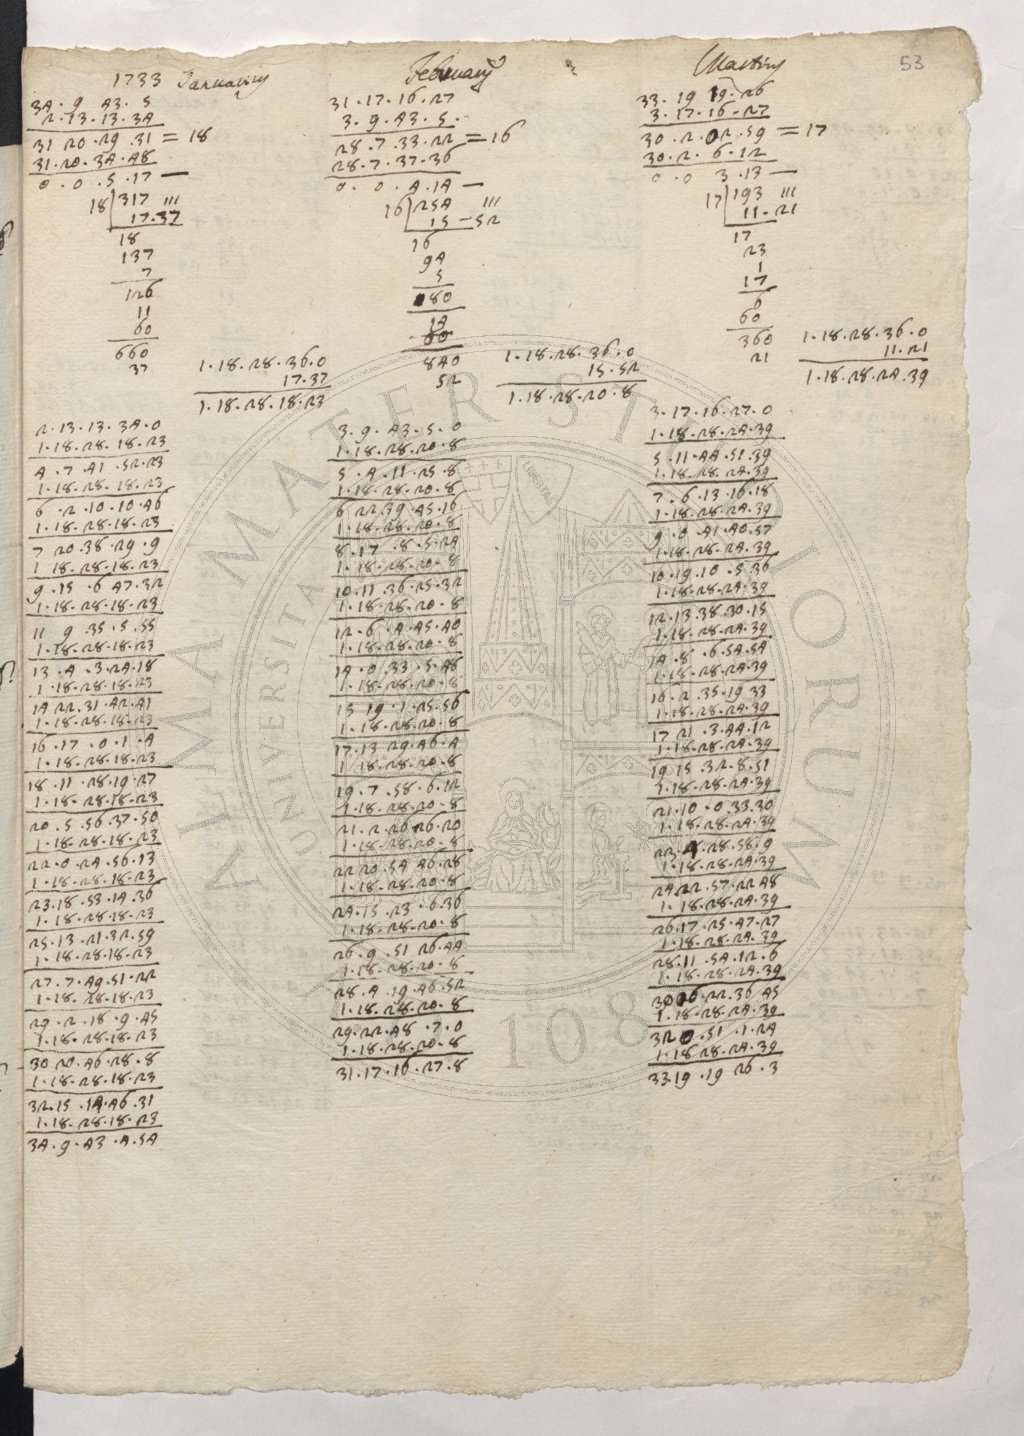 53
1733 Januariy
34 . 9 43 . 5
2 . 13 . 13 . 34
31 20 . 29 . 31 = 18
31 . 20 . 34 . 48
0 . 0 . 5 . 17 —
18 | 317 111
17 . 37
18
137
7
126
11
60
660
37
1 . 18 . 28 . 36 . 0
17 . 37
1 . 18 . 28 . 18 . 23
2 . 13 . 13 . 34 . 0
1 . 18 . 28 . 18 . 23
4 . 7 . 41 . 52 . 23
1 . 18 . 28 . 18 . 23
6 . 2 . 10 . 10 . 46
1 . 18 . 28 . 18 . 23
7 20 . 38 . 29 . 9
1 18 . 28 . 18 . 23
9 . 15 . 6 47 . 32
1 . 18 . 28 . 18 . 23
11 9 . 35 . 5 . 55
1 . 18 . 28 . 18 . 23
13 . 4 . 3 . 24 . 18
1 . 18 . 28 . 18 . 23
14 22 . 31 . 42 . 41
1 . 18 . 28 . 18 . 23
16 . 17 . 0 . 1 . 4
1 . 18 . 28 . 18 . 23
18 . 11 . 28 . 19 . 27
1 . 18 . 28 . 18 . 23
20 . 5 . 56 . 37 . 50
1 . 18 . 28 . 18 . 23
22 . 0 . 24 . 56 . 13
1 . 18 . 28 . 18 . 23
23 . 18 . 53 . 14 . 36
1 . 18 . 28 . 18 . 23
25 . 13 . 21 . 32 . 59
1 . 18 . 28 . 18 . 23
27 . 7 . 49 . 51 . 22
1 . 18 . 28 . 18 . 23
29 . 2 . 18 . 9 . 45
1 . 18 . 28 . 18 . 23
30 20 . 46 . 28 . 8
1 . 18 . 28 . 18 . 23
32 . 15 . 14 . 46 . 31
1 . 18 . 28 . 18 . 23
34 . 9 . 43 . 4 . 54
February
31 . 17 . 16 . 27
3 . 9 . 43 . 5 .
28 . 7 . 33 . 22 = 16
28 . 7 . 37 . 36
0 . 0 . 4 . 14 —
16 | 254 111
15 — 52
16
94
5
80
14
60
840
52
1 . 18 . 28 . 36 . 0
15 . 52
1 . 18 . 28 . 20 . 8
3 . 9 . 43 . 5 . 0
1 . 18 . 28 . 20 . 8
5 . 4 . 11 . 25 . 8
1 . 18 . 28 . 20 . 8
6 22 . 39 . 45 . 16
1 . 18 . 28 . 20 . 8
8 . 17 . 8 . 5 . 24
1 . 18 . 28 . 20 . 8
10 . 11 . 36 . 25 . 32
1 . 18 . 28 . 20 . 8
12 . 6 . 4 . 45 . 40
1 . 18 . 28 . 20 . 8
14 . 0 . 33 . 5 . 48
1 . 18 . 28 . 20 . 8
15 19 . 1 . 25 . 56
1 . 18 . 28 . 20 . 8
17 . 13 29 . 46 . 4
1 . 18 . 28 . 20 . 8
19 . 7 . 58 . 6 . 12
1 . 18 . 28 . 20 . 8
21 . 2 . 26 26 . 20
1 . 18 . 28 . 20 . 8
22 20 . 54 46 . 28
1 . 18 . 28 . 20 . 8
24 . 15 . 23 . 6 . 36
1 . 18 . 28 . 20 . 8
26 . 9 . 51 26 . 44
1 . 18 . 28 . 20 . 8
28 . 4 . 19 . 46 . 52
1 . 18 . 28 . 20 . 8
29 . 22 . 48 . 7 . 0
1 . 18 . 28 . 20 . 8
31 . 17 . 16 . 27 . 8
33 . 19 19 . 26
3 . 17 . 16 . 27
30 . 2 . 02 . 59 = 17
30 . 2 . 6 . 12
0 . 0 3 . 13 —
17 | 193 111
11 . 21
17
23
1
17
6
60
360
21
1 . 18 . 28 . 36 . 0
11 . 21
1 . 18 . 28 . 24 . 39
3 . 17 . 16 . 27 . 0
1 . 18 . 28 . 24 . 39
5 . 11 . 44 . 51 . 39
1 . 18 . 28 . 24 . 39
7 . 6 . 13 . 16 . 18
1 . 18 . 28 . 24 . 39
9 . 0 . 41 . 40 . 57
1 . 18 . 28 . 24 . 39
10 . 19 . 10 . 5 . 36
1 . 18 . 28 . 24 . 39
12 . 13 . 38 . 30 . 15
1 . 18 . 28 . 24 . 39
14 . 8 . 6 . 54 . 54
1 . 18 . 28 . 24 . 39
16 . 2 . 35 . 19 33
1 . 18 . 28 . 24 . 39
17 21 . 3 . 44 . 12
1 . 18 . 28 . 24 . 39
19 15 . 32 . 8 . 51
1 . 18 . 28 . 24 . 39
21 . 10 . 0 . 33 . 30
1 . 18 . 28 . 24 . 39
22 . 4 . 28 . 58 . 9
1 . 18 . 28 . 24 . 39
24 . 22 . 57 . 22 48
1 . 18 . 28 . 24 . 39
26 . 17 . 25 . 47 . 27
1 . 18 . 28 . 24 . 39
28 . 11 . 54 . 12 . 6
1 . 18 . 28 . 24 . 39
30 6 . 22 . 36 45
1 . 18 . 28 . 24 . 39
32 0 . 51 . 1 . 24
1 . 18 28 . 24 . 39
33 . 19 . 19 26 . 3
ALMA MATER STUDIORUM
UNIVERSITA
1088